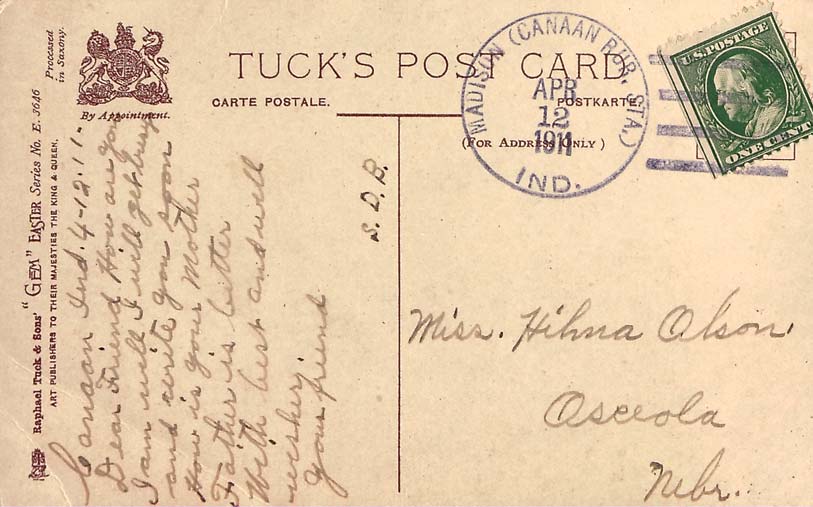 Processed
in Saxony.
By Appointment.
TUCK'S POST CARD
CARTE POSTALE.
POSTKARTE.
(FOR ADDRESS ONLY)
Raphael Tuck & Sons' "GEM" EASTER Series No. E. 3646
ART PUBLISHERS TO THEIR MAJESTIES THE KING & QUEEN.
MADISON (CANAAN RUR. STA.)
APR
12
1911
IND.
U.S. POSTAGE
ONE CENT
Canaan Ind. 4-12-11-
Dear Friend How are you
I am well I will get busy
and write you soon
How is your Mother
Father is better
With best and well
wishes,
your friend
S. D. B.
Miss. Hilma Olson,
Osceola
Nebr.